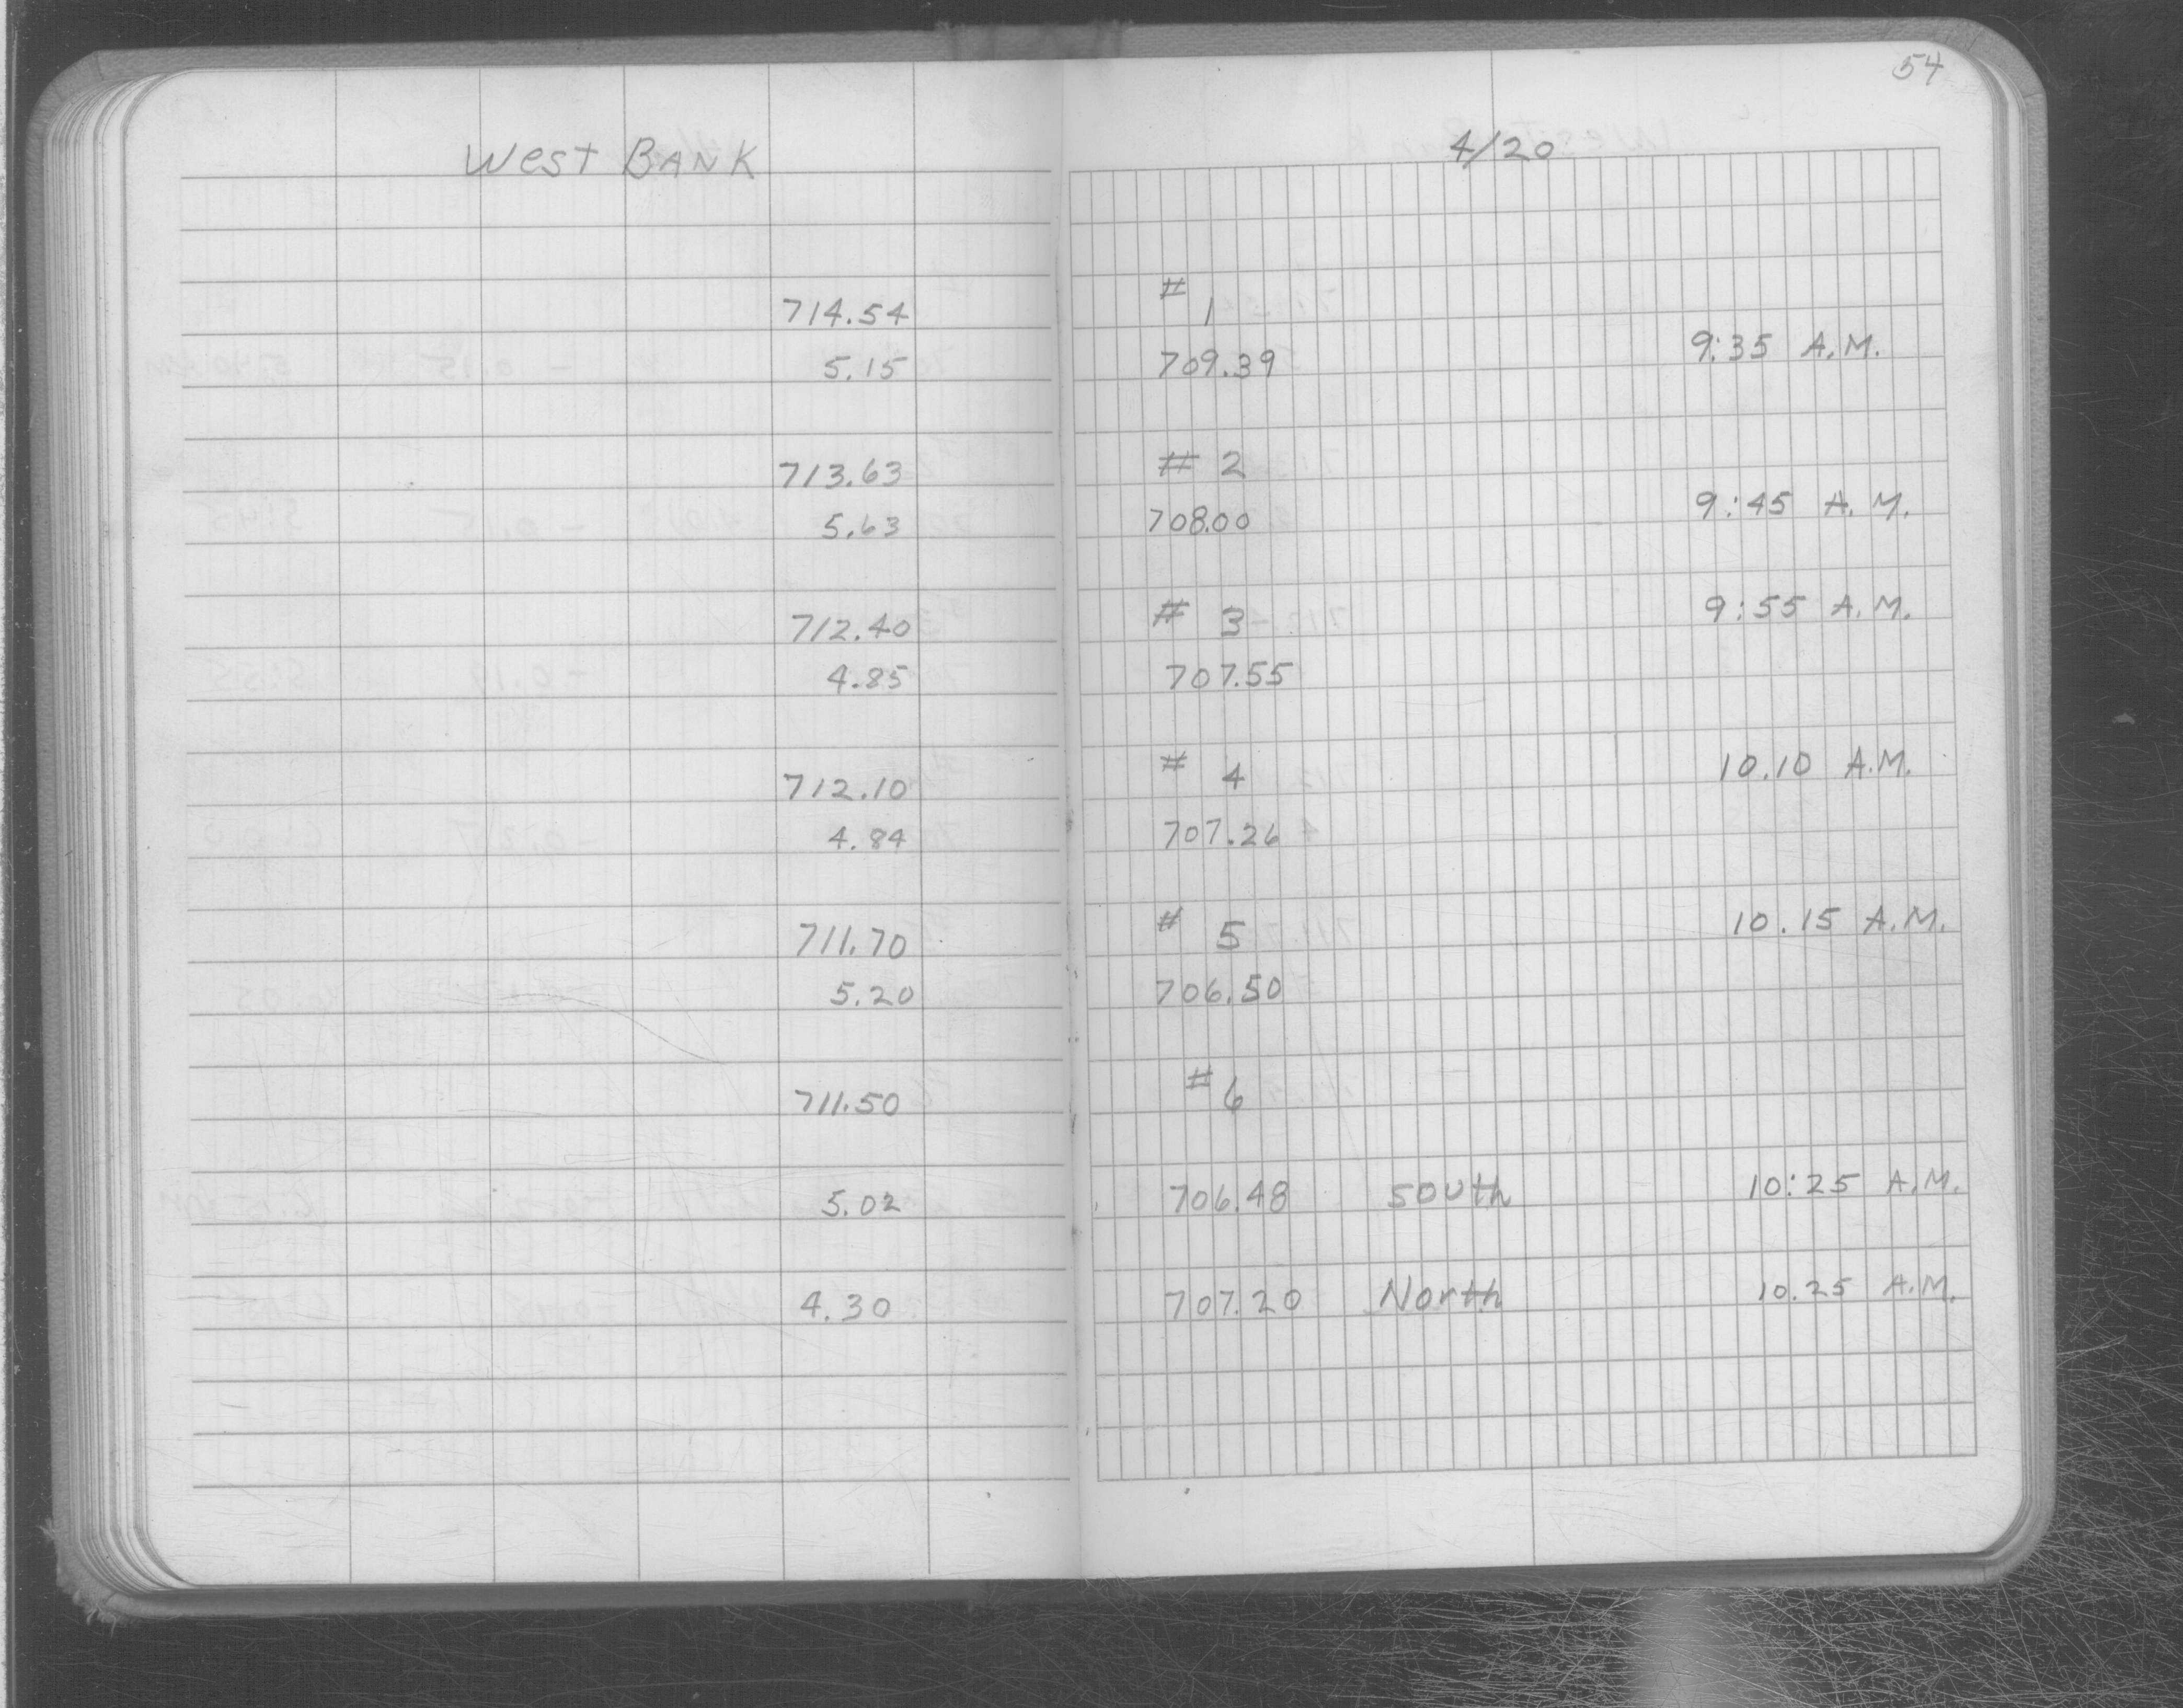 54
West BANK 4/20
714.54 # 1
5.15 709.39 9:35 A.M.
713.63 # 2
5.63 708.00 9:45 A.M.
712.40 # 3 9:55 A.M.
4.85 707.55
712.10 # 4 10.10 A.M.
4.84 707.26
711.70 # 5 10.15 A.M.
5.20 706.50
711.50 # 6
5.02 706.48 South 10:25 A.M.
4.30 707.20 North 10.25 A.M.